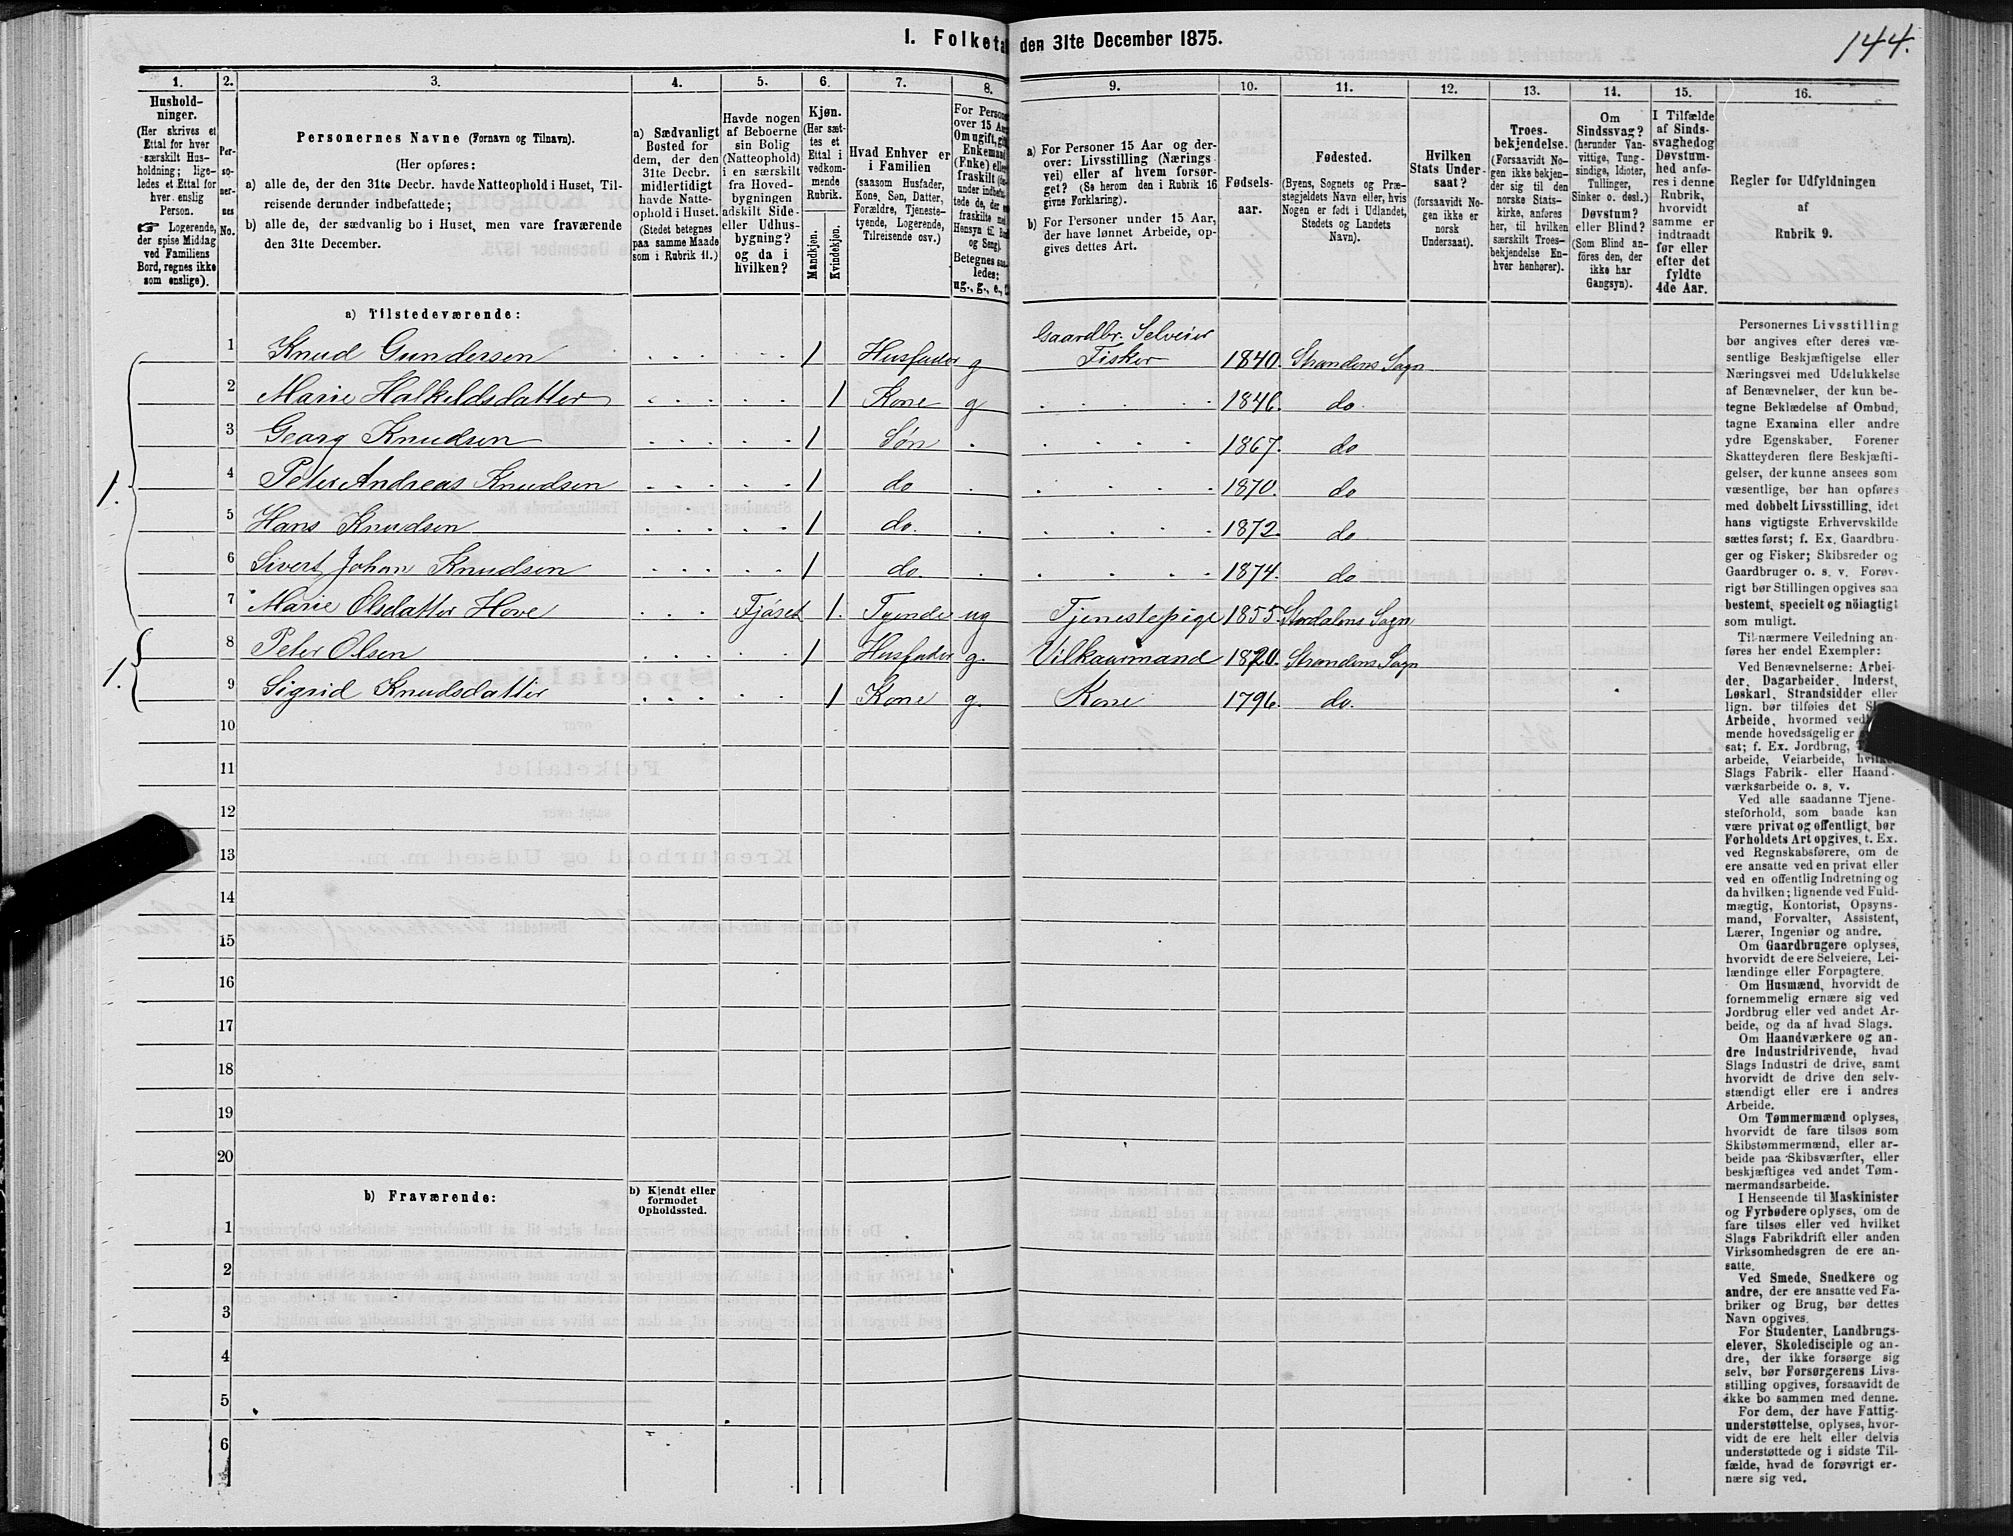 144.
I. Folketa
den 31te December 1875.
1.
Hushold-
ninger.
(Her skrives et
Ettal for hver
særskilt Hus-
holdning; lige-
ledes et Ettal for
hver enslig
Person.
Logerende,
der spise Middag
ved Familiens
Bord, regnes ikke
som enslige).
2.
Per-
so-
ner-
nes
No.
3.
Personernes Navne (Fornavn og Tilnavn).
(Her opføres:
a) alle de, der den 31te Decbr. havde Natteophold i Huset, Til-
reisende derunder indbefattede;
b) alle de, der sædvanlig bo i Huset, men vare fraværende
den 31te December.
4.
a) Sædvanligt
Bosted for
dem, der den
31te Decbr.
midlertidigt
havde Natte-
ophold i Huset.
(Stedet betegnes
paa samme Maade
som i Rubrik 11.)
5.
Havde nogen
af Beboerne
sin Bolig
(Natteophold)
i en særskilt
fra Hoved-
bygningen
adskilt Side-
eller Udhus-
bygning?
og da i
hvilken?
6.
Kjøn.
(Her sæt-
tes et
Ettal i
vedkom-
mende
Rubrik.
Mandkjøn.
Kvindekjøn.
7.
Hvad Enhver er
i Familien
(saasom Husfader,
Kone, Søn, Datter,
Forældre, Tjeneste-
tyende, Logerende,
Tilreisende osv.)
8.
For Persone
over 15 Aa
Om ugift, gif
Enkemand
(Fnke) elle
fraskilt
under indbefat-
tede de, der
fraskilte med
Hensyn til Bo
og Seng).
Betegnes saa-
ledes;
ug., g., e.,
9.
a) For Personer 15 Aar og der-
over: Livsstilling (Nærings-
vei) eller af hvem forsør-
get? (Se herom den i Rubrik 16
givne Forklaring).
b) For Personer under 15 Aar,
der have lønnet Arbeide, op-
gives dettes Art.
10.
Fødsels-
aar.
11.
Fødested.
(Byens, Sognets og Præ-
stegjeldets Navn eller, hvis
Nogen er født i Udlandet,
Stedets og Landets
Navn).
12.
Hvilken
Stats Under-
saat?
(forsaavidt No-
gen ikke er
norsk
Undersaat).
13.
Troes-
bekjendelse.
(Forsaavidt No-
gen ikke bekjen-
der sig til den
norske Stats-
kirke, anføres
her, til hvilken
særskilt Troes-
bekjendelse En-
hver henhører).
14.
Om
Sindssvag?
(herunder Van-
vittige, Tung-
sindige, Idioter,
Tullinger,
Sinker o. desl.)
Døvstum?
eller Blind?
(Som Blind an-
føres den, der
ikke har
Gangsyn).
15.
I Tilfælde
af Sinds-
svaghed og
Døvstum-
hed anfø-
res i denne
Rubrik,
hvorvidt
samme er
indtraadt
før eller
efter det
fyldte
4de Aar.
16.
Regler for Udfyldningen
af
Rubrik 9.
a) Tilstedeværende:
1 Knud Gundersen 1 Husfader g Gaardbr. Selveier Fisker 1840. Strandens Sogn
2 Marie Halkildsdatter 1 Kone g 1846. do.
3 Georg Knudsen 1 Søn 1867. do
4 Peter Andreas Knudsen 1 do 1870. do
1.
5 Hans Knudsen 1 do. 1872. do
6 Sivert Johan Knudsen 1 do. 1874. do
7 Marie Olsdatter Hove Fjøset 1. Tyende ug Tjenestepige 1855. Stordalens Sogn
8 Peter Olsen 1 Husfader g. Vilkaarmand 1820. Strandens Sogn
1.
9 Sigrid Knudsdatter 1 Kone g. Kone 1796. do.
10
11
12
13
14
15
16
17
18
19
20
b) Fraværende:
b) Kjendt eller
formodet
Opholdssted.
1
2
3
4
5
6
Personernes Livsstilling
bør angives efter deres væ-
sentlige Beskjæftigelse eller
Næringsvei med Udelukkelse
af Benævnelser, der kun be-
tegne Beklædelse af Ombud,
tagne Examina eller andre
ydre Egenskaber. Forener
Skatteyderen flere Beskjæfti-
gelser, der kunne ansees som
væsentlige, bør han opføres
med dobbelt Livsstilling, idet
hans vigtigste Erhvervskilde
sættes først; f. Ex. Gaardbru-
ger og Fisker; Skibsreder og
Gaardbruger o. s. v. Forøv-
rigt bør Stillingen opgives saa
bestemt, specielt og nöiagtigt
som muligt.
Til nærmere Veiledning an-
føres her endel Exempler:
Ved Benævnelserne: Arbei-
der, Dagarbeider, Inderst,
Løskarl, Strandsidder eller
lign. bør tilføies det Sl
Arbeide, hvormed ved
mende hovedsagelig er
sat; f. Ex. Jordbrug,
arbeide, Veiarbeide, hvilket
Slags Fabrik- eller Haand-
værksarbeide o. s. v.
Ved alle saadanne Tjene-
steforhold, som baade kan
være privat og offentligt, bør
Forholdets Art opgives, t. Ex.
ved Regnskabsførere, om de
ere ansatte ved en privat eller
ved en offentlig Indretning og
da hvilken; lignende ved Fuld-
mægtig, Kontorist, Opsyns-
mand, Forvalter, Assistent,
Lærer, Ingeniør og andre.
Om Gaardbrugere oplyses,
hvorvidt de ere Selveiere, Lei-
lændinge eller Forpagtere.
Om Husmænd, hvorvidt de
fornemmelig ernære sig ved
Jordbrug eller ved andet Ar-
beide, og da af hvad Slags.
Om Haandværkere og an-
dre Industridrivende, hvad
Slags Industri de drive, samt
hvorvidt de drive den selv-
stændigt eller ere i andres
Arbeide.
Om Tømmermænd oplyses,
hvorvidt de fare tilsøs som
Skibstømmermænd, eller ar-
beide paa Skibsværfter, eller
beskjæftiges ved andet Tøm-
mermandsarbeide.
I Henseende til Maskinister
og Fyrbødere oplyses, om de
fare tilsøs eller ved hvilket
Slags Fabrikdrift eller anden
Virksomhedsgren de ere an-
satte.
Ved Smede, Snedkere og
andre, der ere ansatte ved Fa-
briker og Brug, bør dettes
Navn opgives.
For Studenter, Landbrugs-
elever, Skoledisciple og an-
dre, der ikke forsørge sig
selv, bør Forsørgerens Livs-
stilling opgives, forsaavidt de
ikke bo sammen med denne.
For dem, der have Fattig-
understøttelse, oplyses, hvor-
vidt de ere helt eller delvis
understøttede og i sidste Til-
fælde, hvad de forøvrigt er-
nære sig ved.